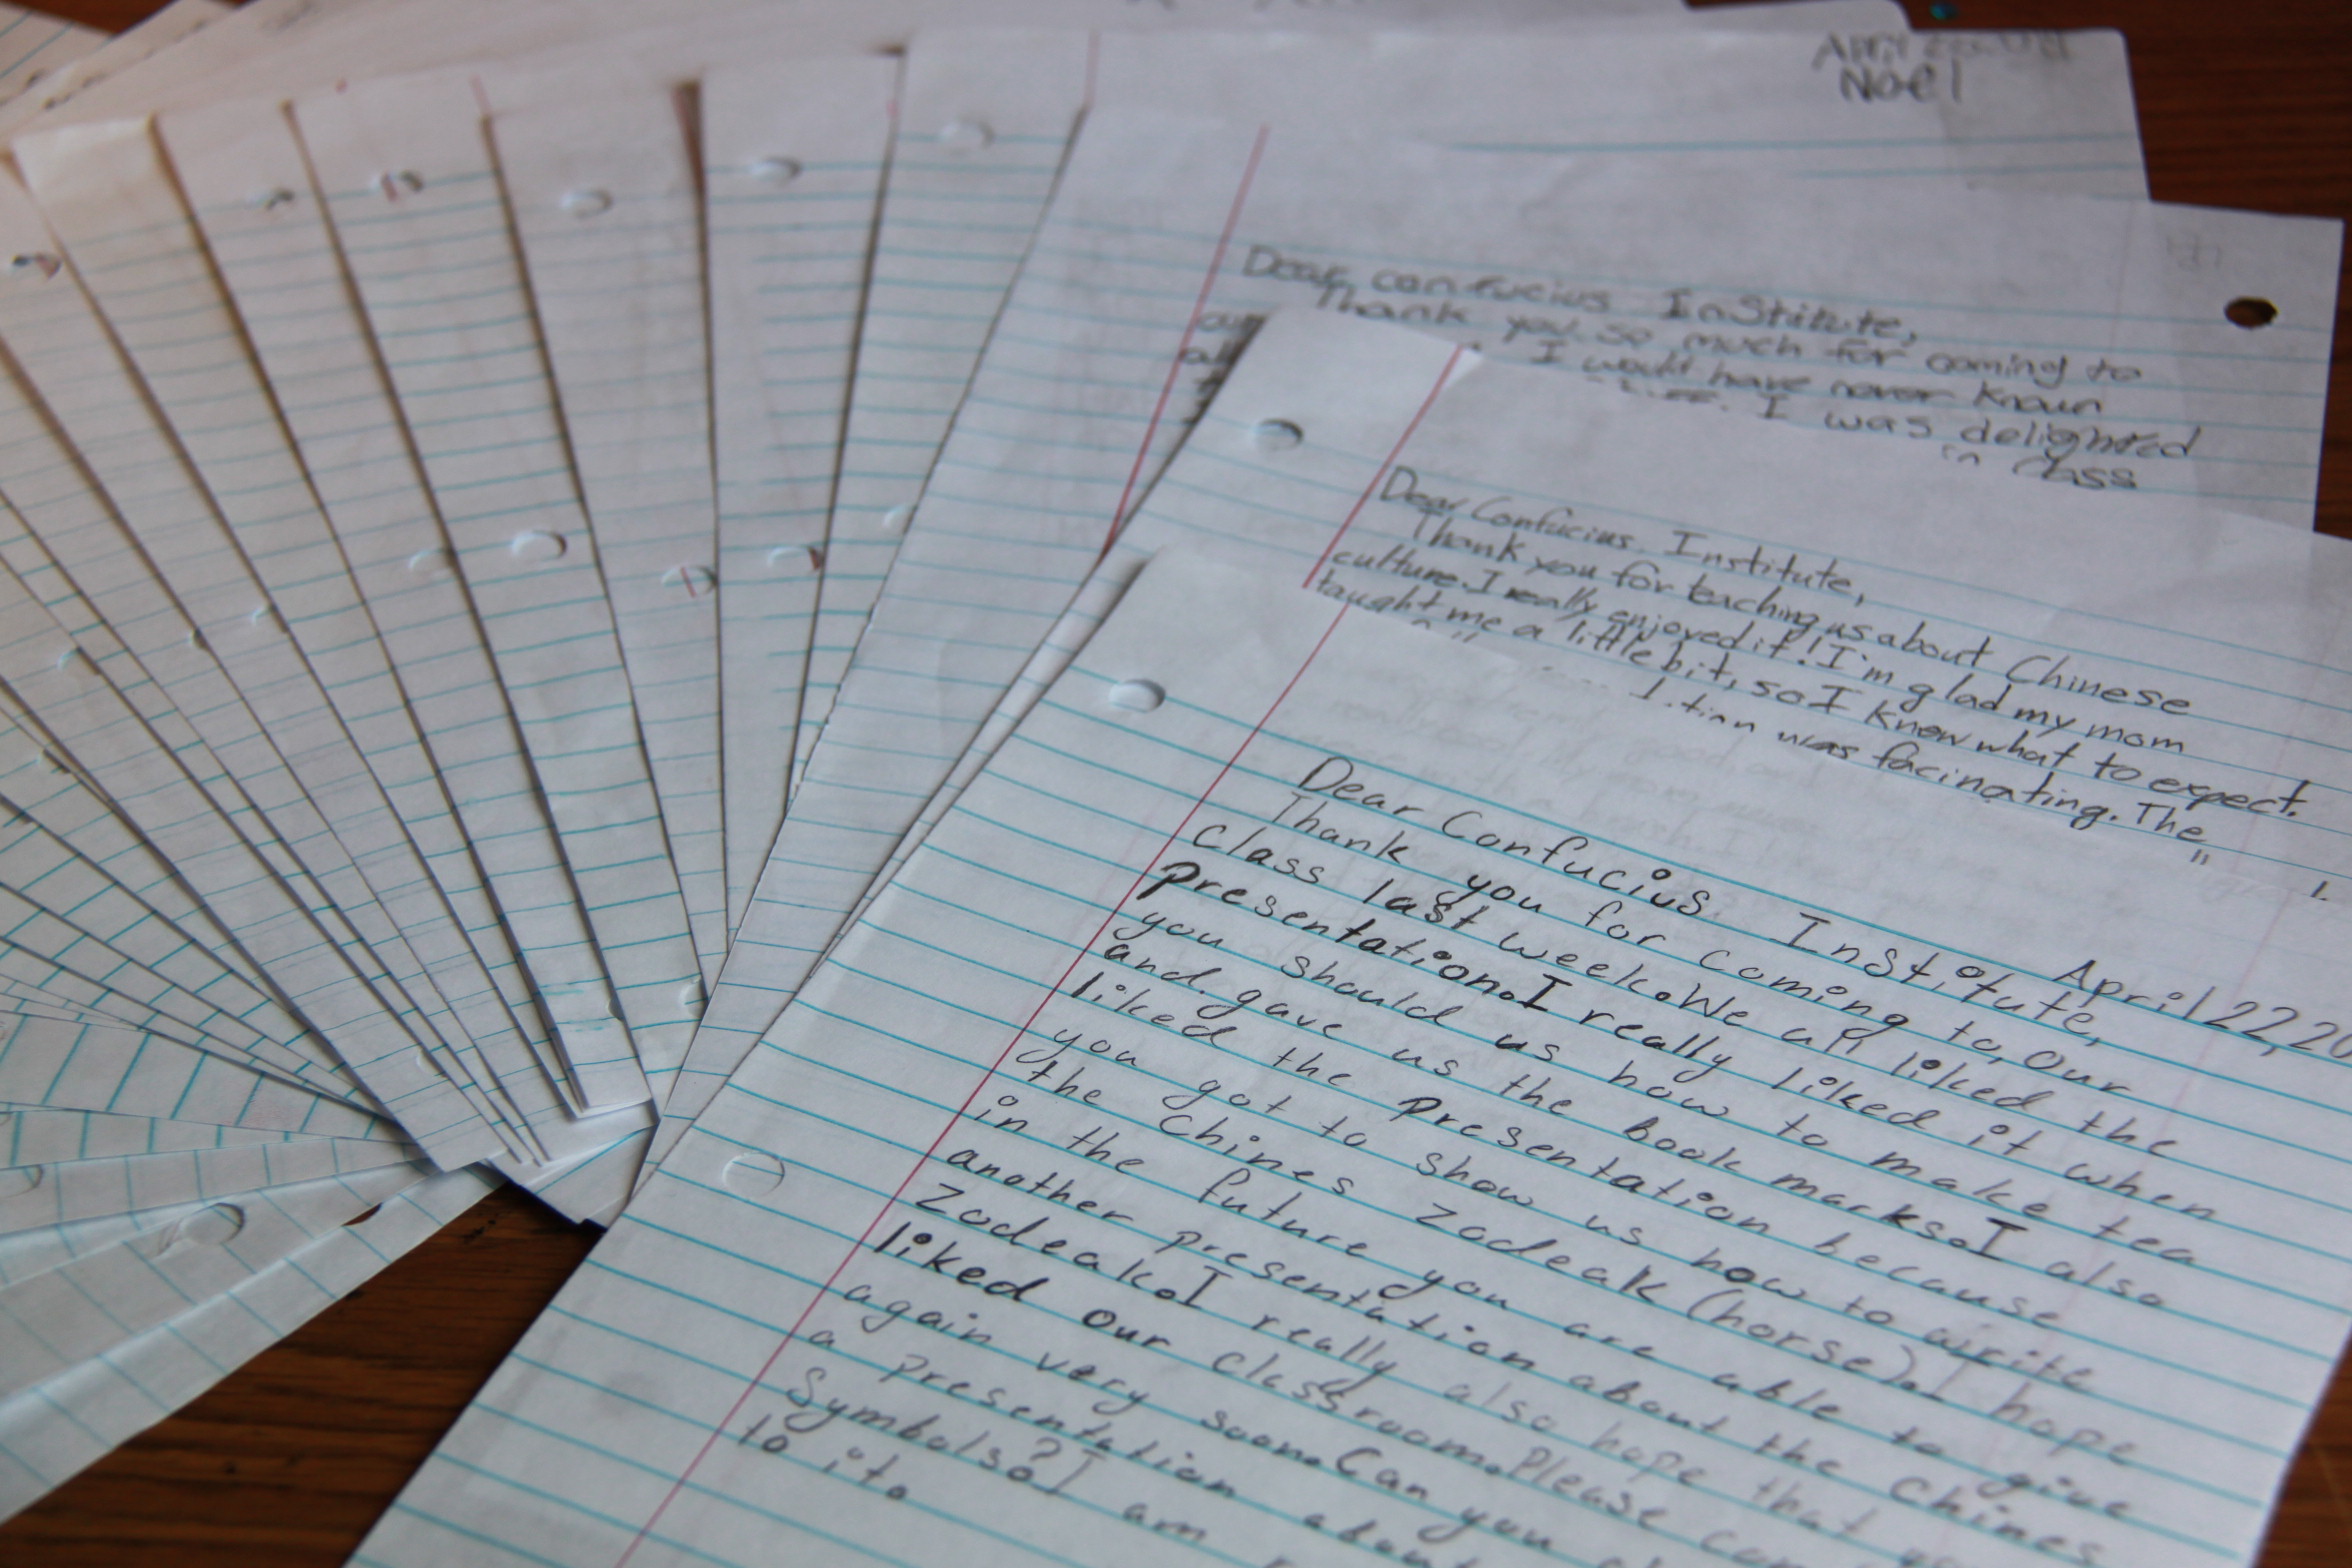 April
Noel
Dear confucius Institute,
Thank you so much for coming to
I would have never known
I was delighted
in class
Dear Confucius Institute,
Thank you for teaching us about Chinese
culture. I really enjoyed it! I'm glad my mom
taught me a little bit, so I know what to expect.
was facinating. The
April 22, 20
Dear Confucius Institute,
Thank you for coming to, Our
Class last week. We all liked the
presentation. I really liked it when
you should us how to make tea
and gave us the book marks. I also
liked the presentation because
you got to show us how to write
the Chines Zodeak (horse). I hope
in the future you are able to give
another presentation about the Chines
Zodeak. I really also hope that
liked our Classroom. Please
again very soon. Can you
a presentation about
Symbols? I am
to it.